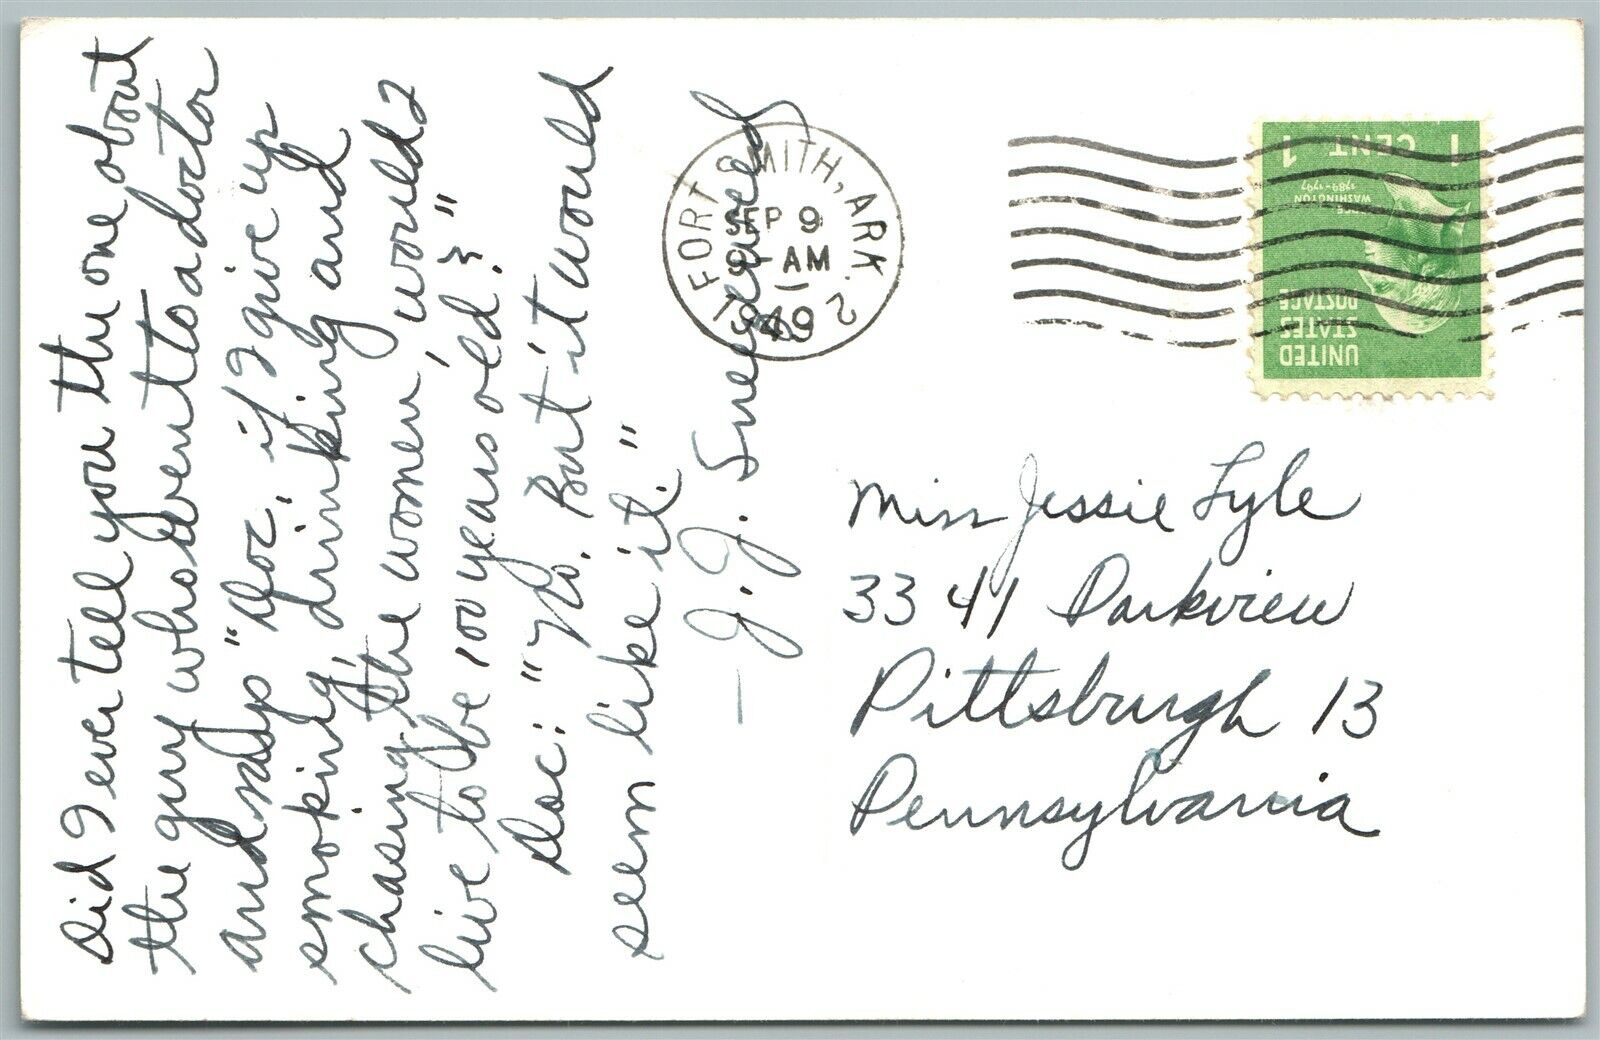 Did I ever tell you the one about
the guy who went to a doctor
and says "Doc, if I give up
smoking, drinking and
chasing the women, would I
live to be 100 years old?"
Doc: "No. But it would
seem like it."
— J. J.
FORT SMITH, ARK. 2
SEP 9
9 - AM
1949
1 CENT 1
GEORGE
WASHINGTON
1789-1797
UNITED
STATES
POSTAGE
Miss Jessie Lyle
3341 Parkview
Pittsburgh 13
Pennsylvania